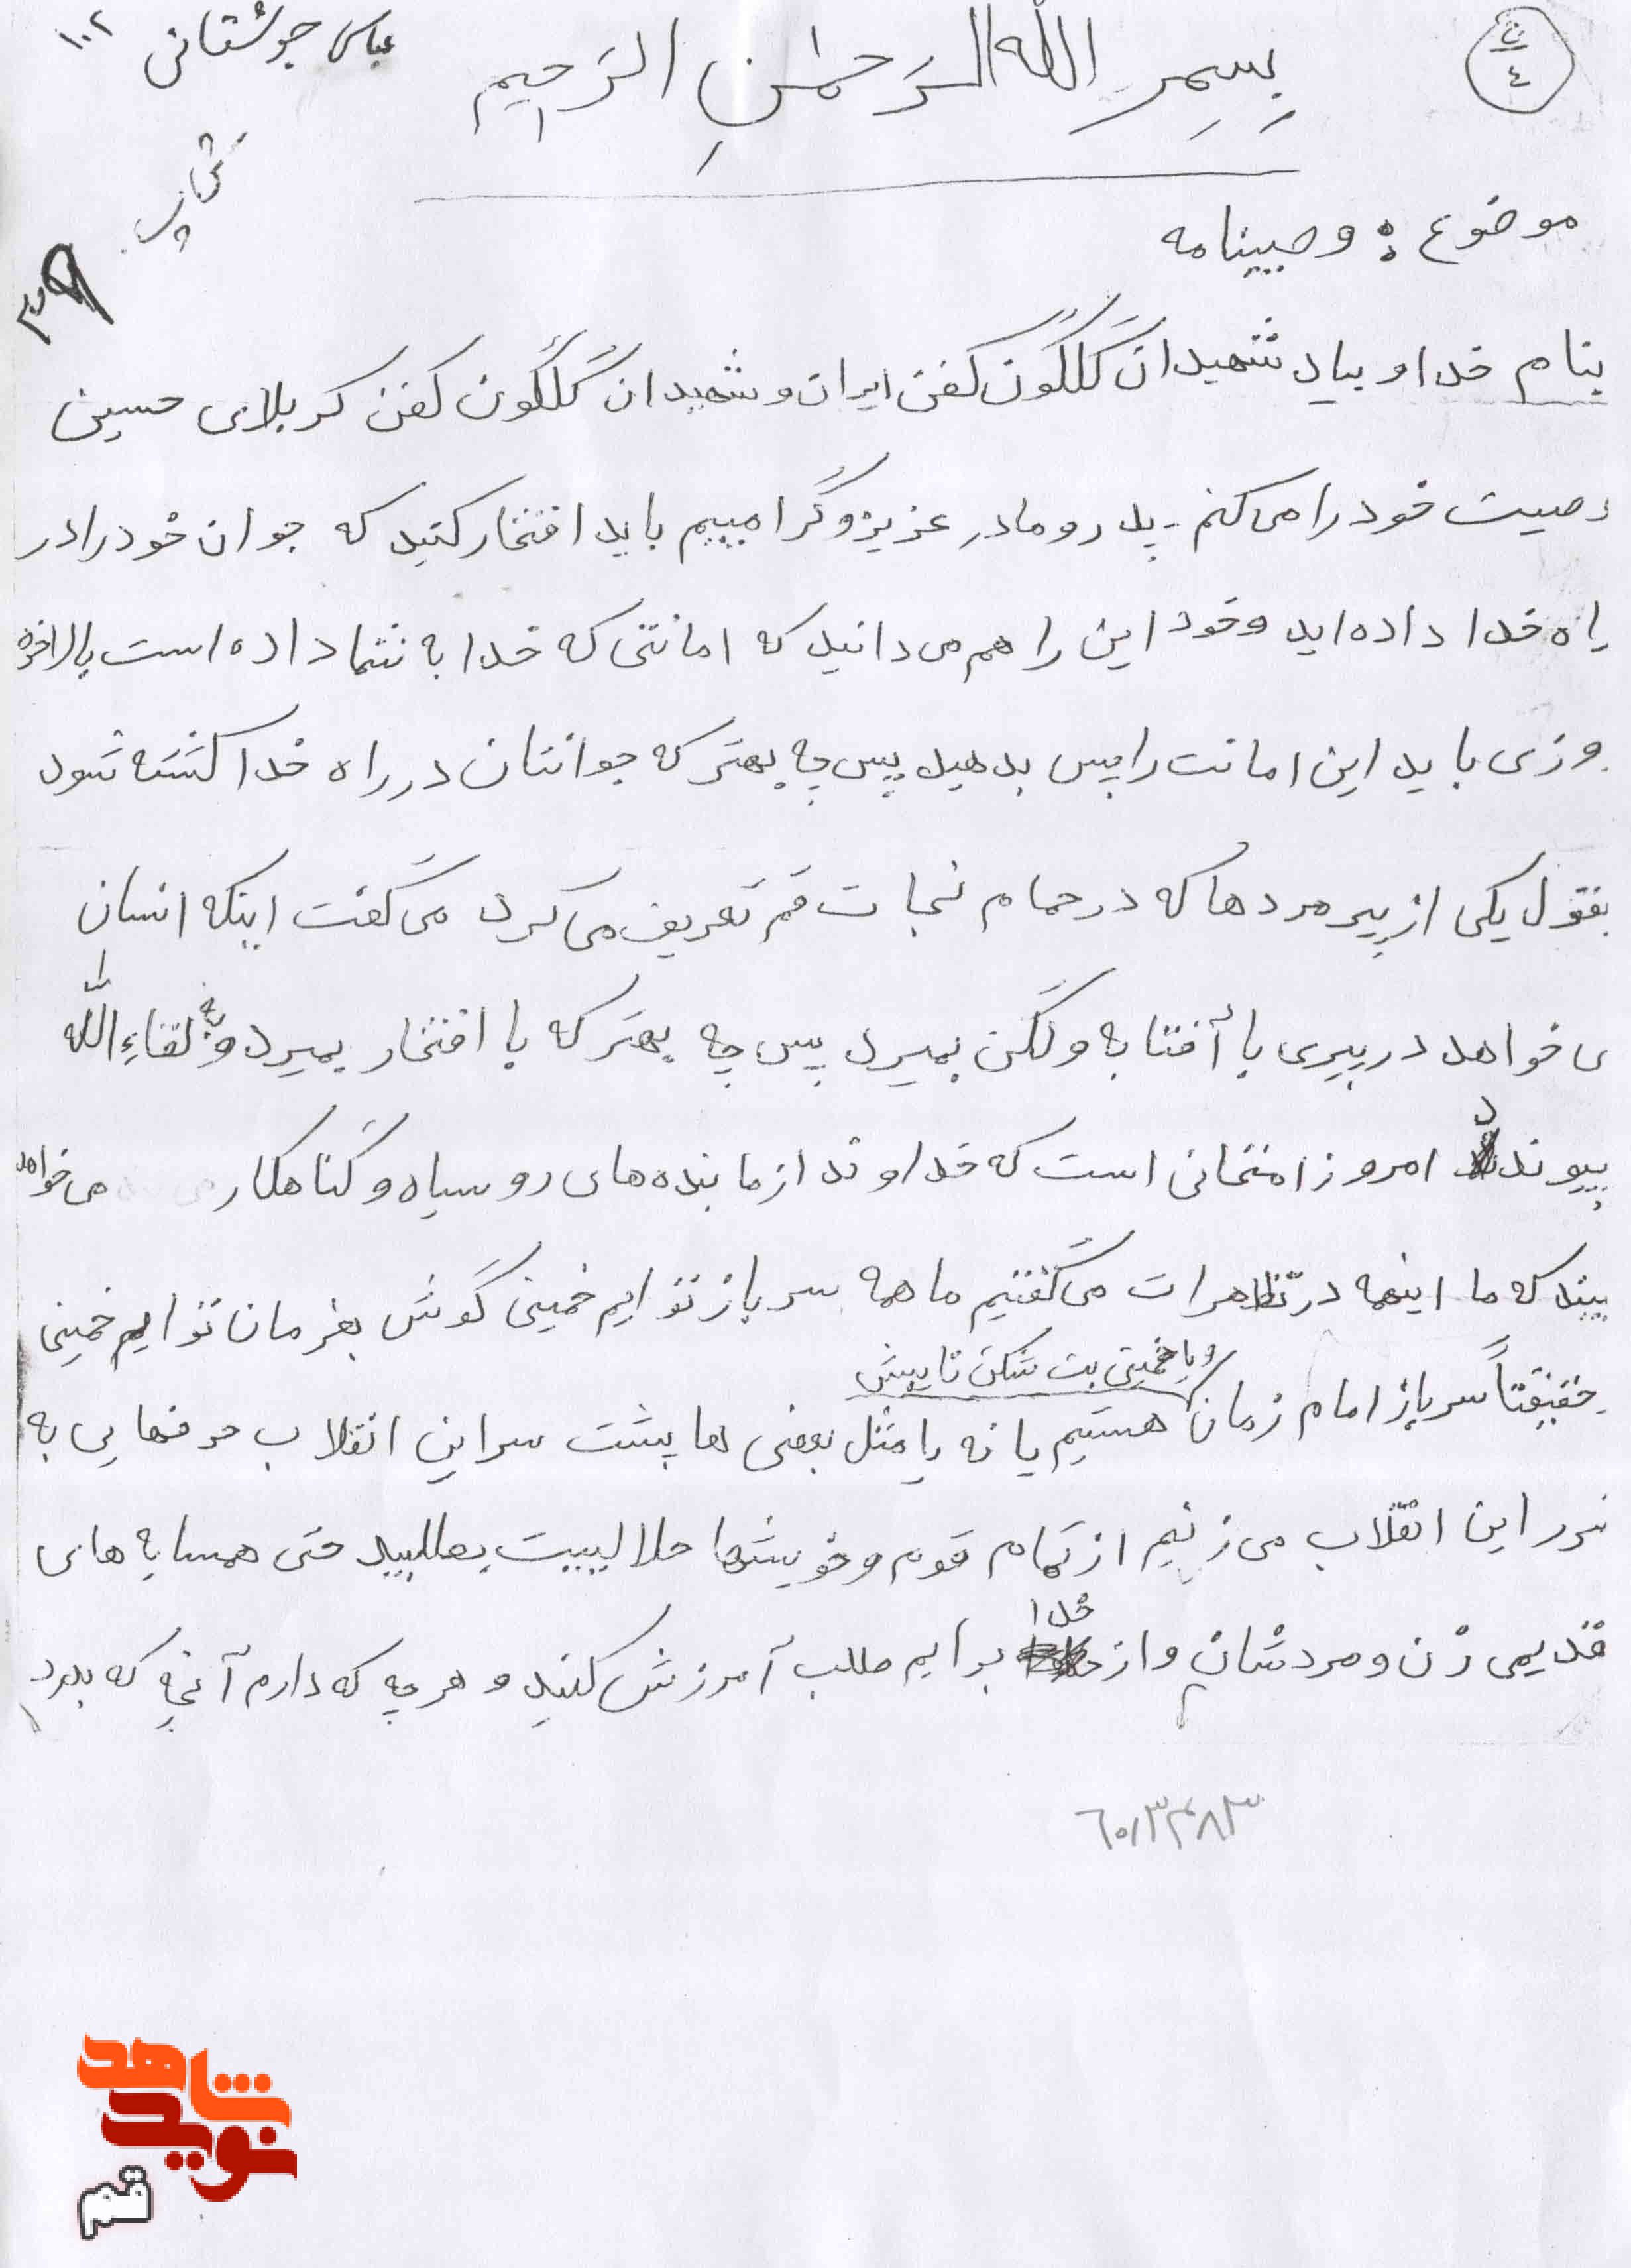 عباس جوشقانی ۱۰۲
ن
٤
بِسمِ اللّٰه الرَحمٰنِ الرَحیم
موضوع : وصیتنامه
بنام خدا و بیاد شهیدان گلگون کفن ایران و شهیدان گلگون کفن کربلای حسین
وصیت خود را می کنم - پدر و مادر عزیز و گرامیم باید افتخار کنید که جوان خود را در
راه خدا داده اید و خود این را هم می دانید که امانتی که خدا به شما داده است بالاخره
روزی باید این امانت را پس بدهید پس چه بهتر که جوانتان در راه خدا کشته شود
بقول یکی از پیر مردها که در حمام نجات قم تعریف می کرد می گفت اینکه انسان
می خواهد در پیری با أفتابه و لگن بمیرد پس چه بهتر که با افتخار بمیرد و به لقاءِ اللّٰه
پیوندد امروز امتحانی است که خداوند از ما بنده های رو سیاه و گناهکار می خواهد
ببیند که ما اینهمه در تظاهرات می گفتیم ما همه سرباز توایم خمینی گوش بفرمان توایم خمینی
حقیقتاً سرباز امام زمان و یا خمینی بت شکن تا پیش هستیم یا نه یا مثل بعضی ها پشت سر این انقلاب حرفهایی به
ضرر این انقلاب می زنیم از تمام قوم و خویشها حلالیت بطلبید حتی همسایه های
قدیمی زن و مردشان و از خدا برایم طلب آمرزش کنید و هر چه که دارم آنچه که بدرد
شاهد
نوید
قم